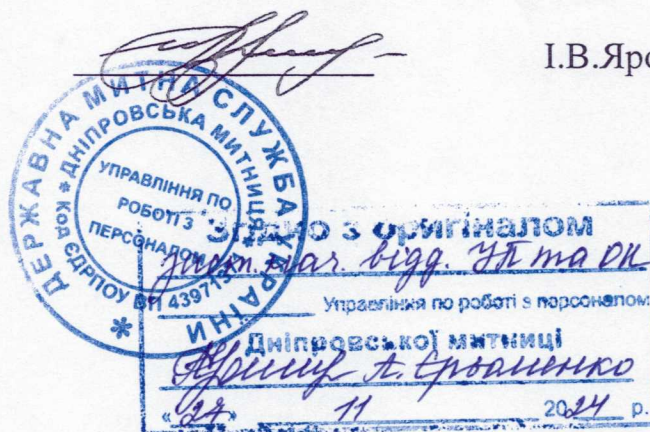 І.В.Яро
ДЕРЖАВНА МИТНА СЛУЖБА УКРАЇНИ
ДНІПРОВСЬКА МИТНИЦЯ
Код ЄДРПОУ ВП 439713
УПРАВЛІННЯ ПО
РОБОТІ З
ПЕРСОНАЛОМ
Згідно з оригіналом
заст. нач. відд. УП та ОП
Управління по роботі з персоналом
Дніпровської митниці
А. Єрьоменко
«27» 11 2024 р.